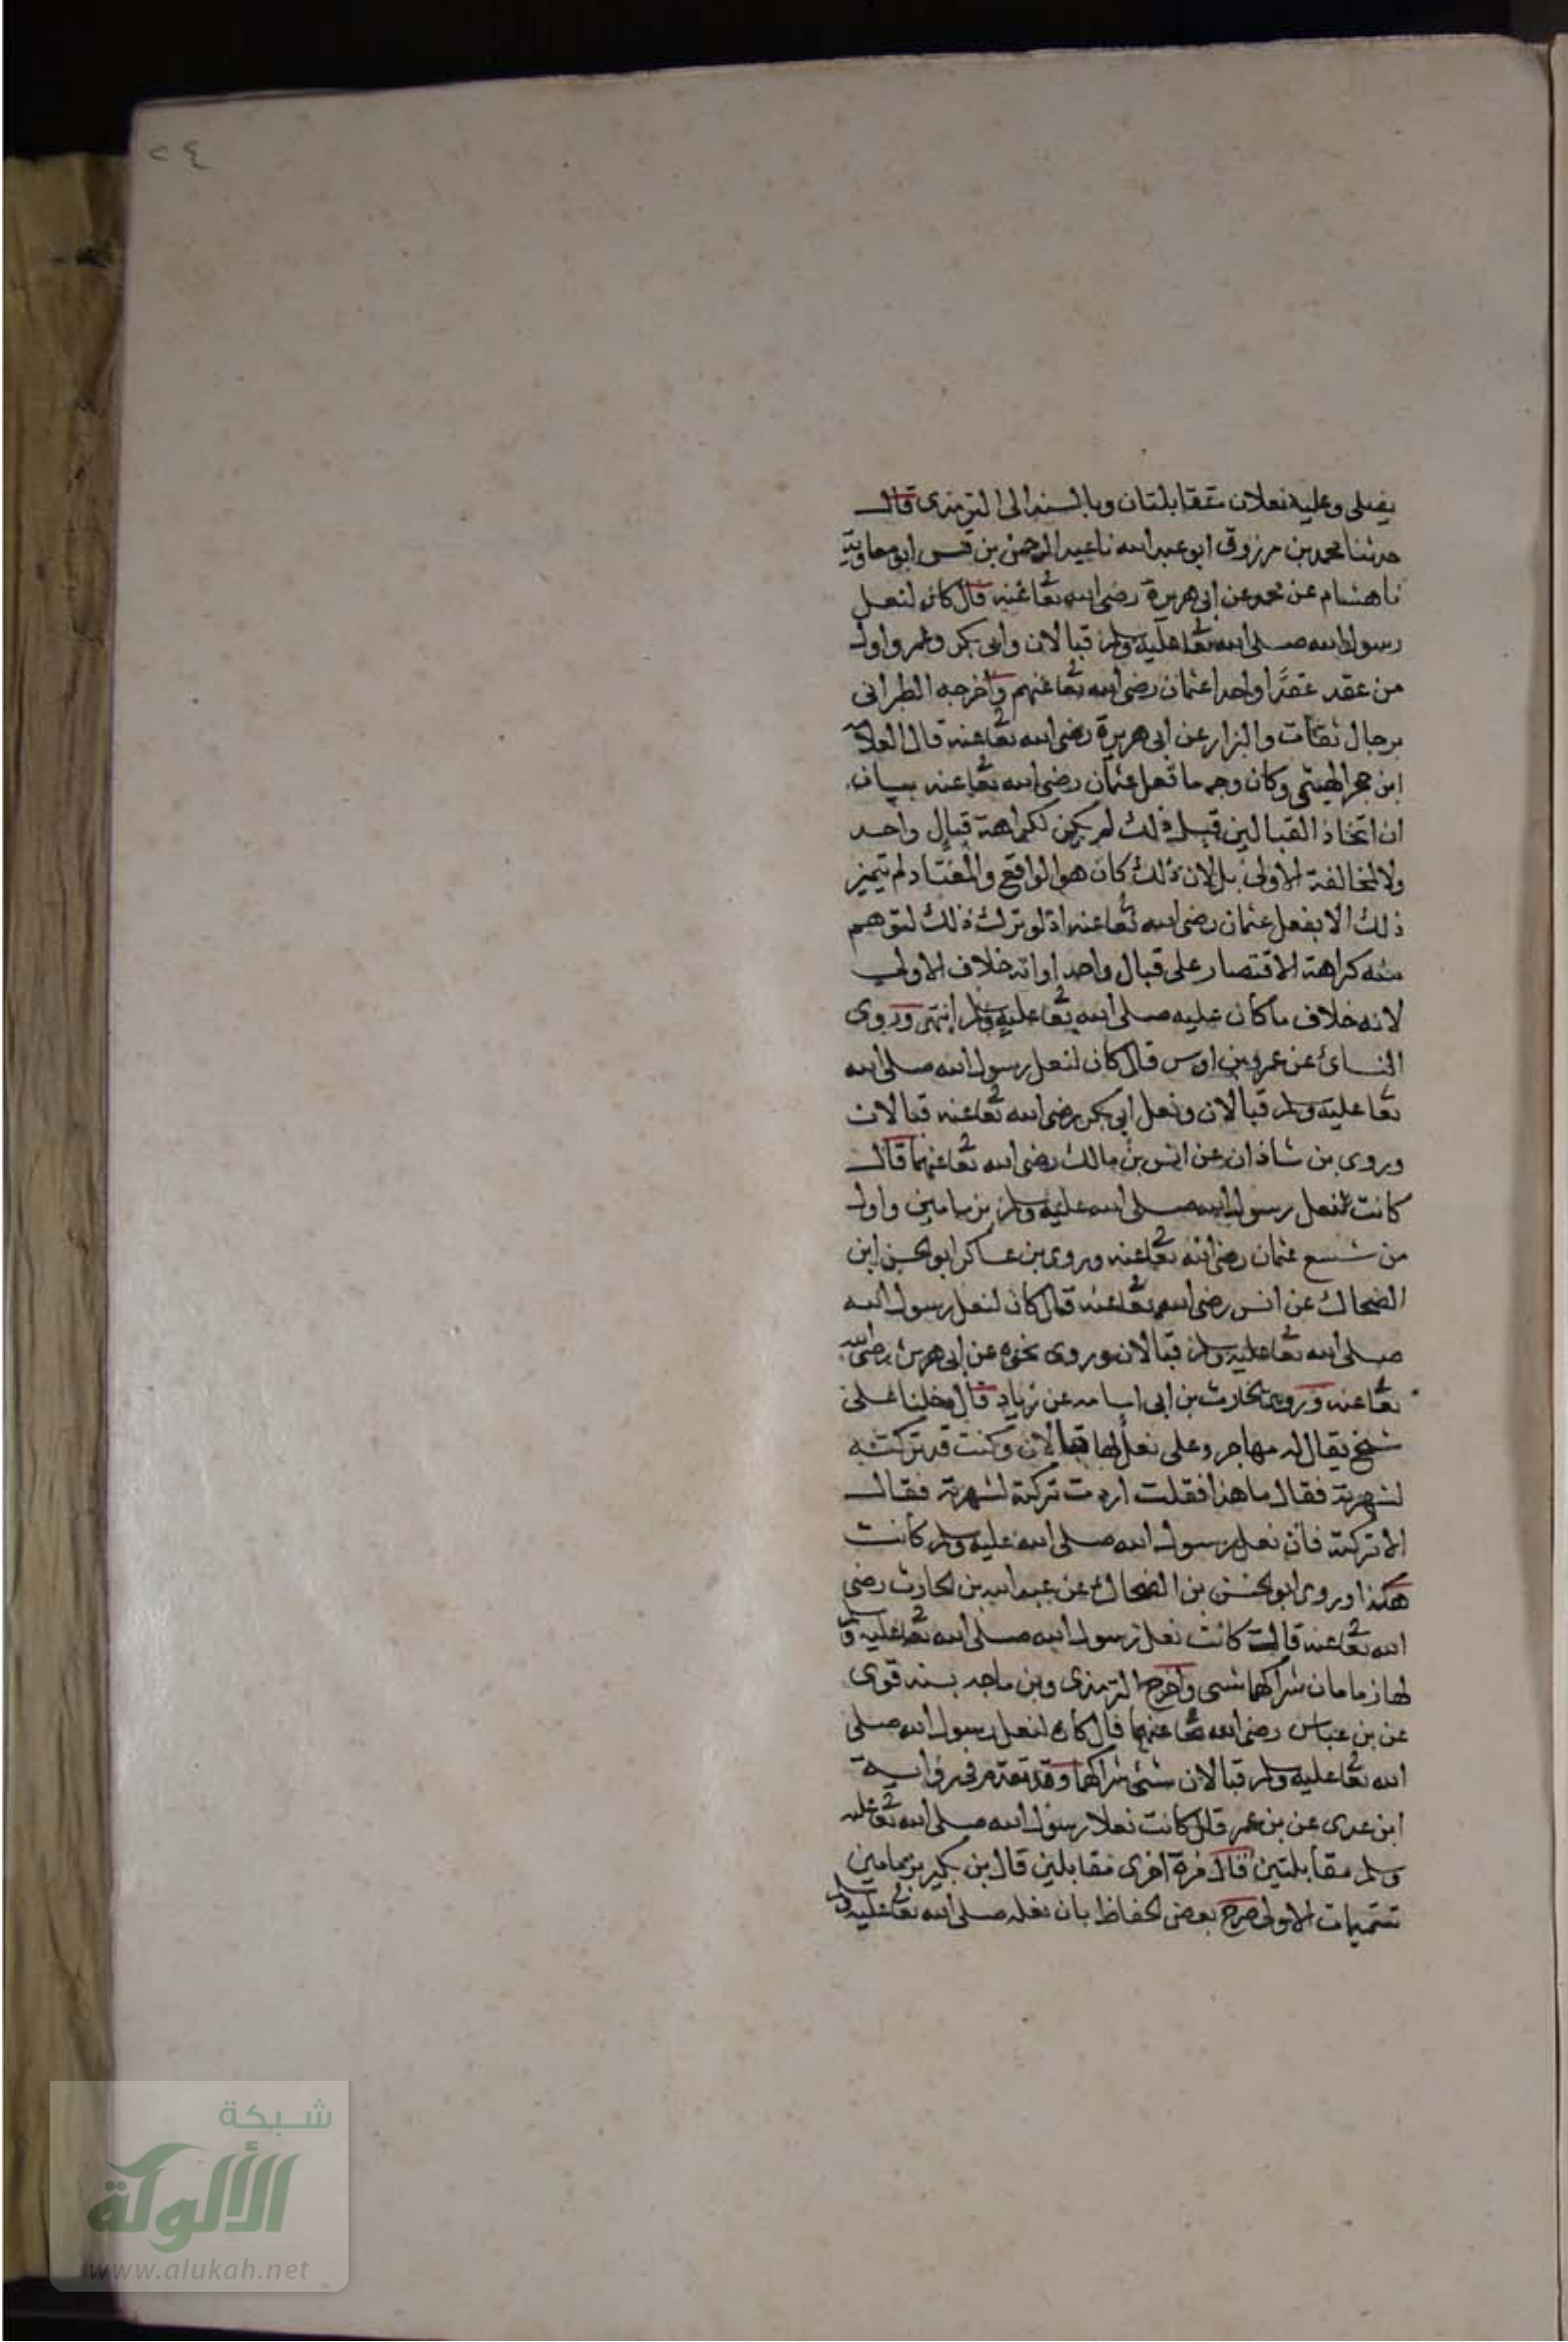 ٢٤
يصلى وعليه نعلان متقابلتان وبالسند الى الترمذى قال
حدثنا محمد بن مرزوق ابو عبد الله نا عبد الرحمن بن قيس ابو معاوية
نا هشام عن محمد عن ابى هريرة رضى الله تعا عنه قال كان لنعل
رسول الله صلى الله تعا عليه وسلم قبالان وابى بكر وعمر واول
من عقد عقدًا واحدا عثمان رضى الله تعا عنهم واخرجه الطبرانى
برجال ثقات والبزار عن ابى هريرة رضى الله تعا عنه قال العلامة
ابن حجر الهيتمى وكان وجه ما فعل عثمان رضى الله تعا عنه بيان
ان اتخاذ القبالين قبل ذلك لم يكن لكراهة قبال واحد
ولا لمخالفة الاولى بل لان ذلك كان هو الواقع والمعتاد لم يتميز
ذلك الا بفعل عثمان رضى الله تعا عنه اذ لو ترك ذلك لتوهم
منه كراهة الاقتصار على قبال واحد او انه خلاف الاولى
لانه خلاف ما كان عليه صلى الله تعا عليه وسلم انتهى وروى
النسائى عن عمرو بن اوس قال كان لنعل رسول الله صلى الله
تعا عليه وسلم قبالان ونعل ابى بكر رضى الله تعا عنه قبالان
وروى بن شاذان عن انس بن مالك رضى الله تعا عنهما قال
كانت لنعل رسول الله صلى الله عليه وسلم زمامين واول
من شسع عثمان رضى الله تعا عنه وروى بن عساكر ابو الحسن ابن
الضحاك عن انس رضى الله تعا عنه قال كان لنعل رسول الله
صلى الله تعا عليه وسلم قبالان وروى نحوه عن ابى هريرة رضى الله
تعا عنه وروى الحارث بن ابى اسامه عن زياد قال دخلنا على
شيخ يقال له مهاجر وعلى نعل لها قبالان وكنت قد تركته
لشهرته فقال ما هذا فقلت اردت تركه لشهرته فقال
لا تركه فان نعل رسول الله صلى الله عليه وسلم كانت
هكذا وروى ابو الحسن بن الضحاك عن عبد الله بن الحارث رضى
الله تعا عنه قال كانت نعل رسول الله صلى الله تعا عليه وسلم
لها زمامان شراكهما شسى واخرج الترمذى وبن ماجه بسند قوى
عن بن عباس رضى الله تعا عنهما قال كان لنعل رسول الله صلى
الله تعا عليه وسلم قبالان شئى شراكهما وقد تقدم فى رواية
ابن عدى عن بن عمر قال كانت نعلا رسول الله صلى الله تعا عليه
وسلم مقابلتين قال مرة اخرى مقابلين قال بن بكير بزمامين
تتميمات الاولى صرح بعض الحفاظ بان نعله صلى الله تعا عليه وسلم
شبكة
الألوكة
www.alukah.net